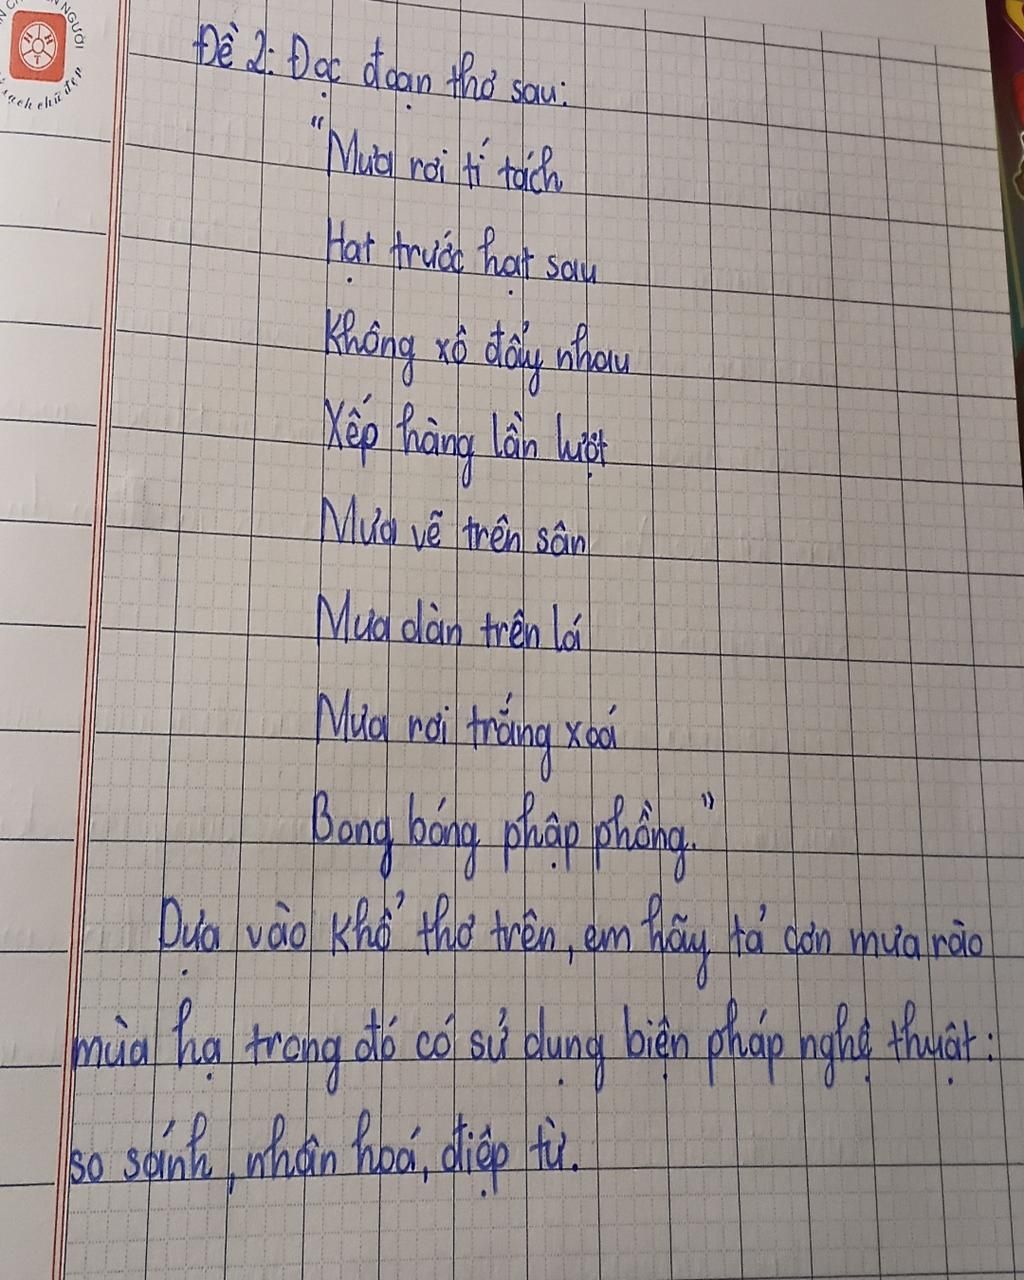 N NGƯỜI
sạch chữ đẹp
Đề 2: Đọc đoạn thơ sau:
"Mưa rơi tí tách
Hạt trước hạt sau
Không xô đẩy nhau
Xếp hàng lần lượt
Mưa vẽ trên sân
Mưa dàn trên lá
Mưa rơi trắng xoá
Bong bóng phập phồng."
Dựa vào khổ thơ trên, em hãy tả cơn mưa rào
mùa hạ trong đó có sử dụng biện pháp nghệ thuật:
so sánh, nhân hoá, điệp từ.